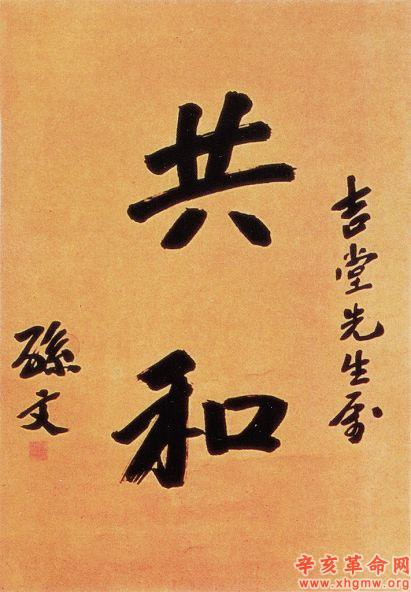 吉堂先生屬
共和
孫文
辛亥革命网
www.xhgmw.org